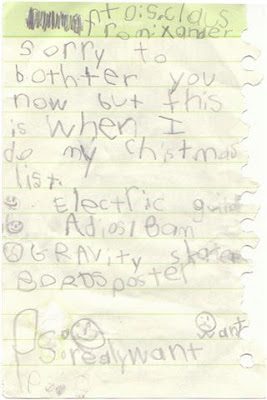 nto:s.claus
from:xander
sorry to
bothter you
now but this
is when I
do my christmas
list.
Electric
Adios/Bam
GRAVity skate
BORDS poster
want
PS: I realy want